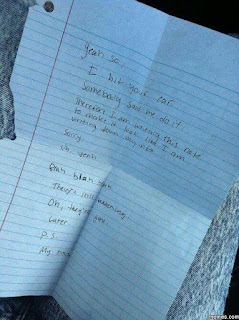 Yeah so,
I hit your car
Somebody saw me do it
therefore I am writing this note
to make it look like I am
writing down my info
Sorry.
Uh. yeah
Blah blah blah
They're still
Oh, they're gone
Later
P.S.
My